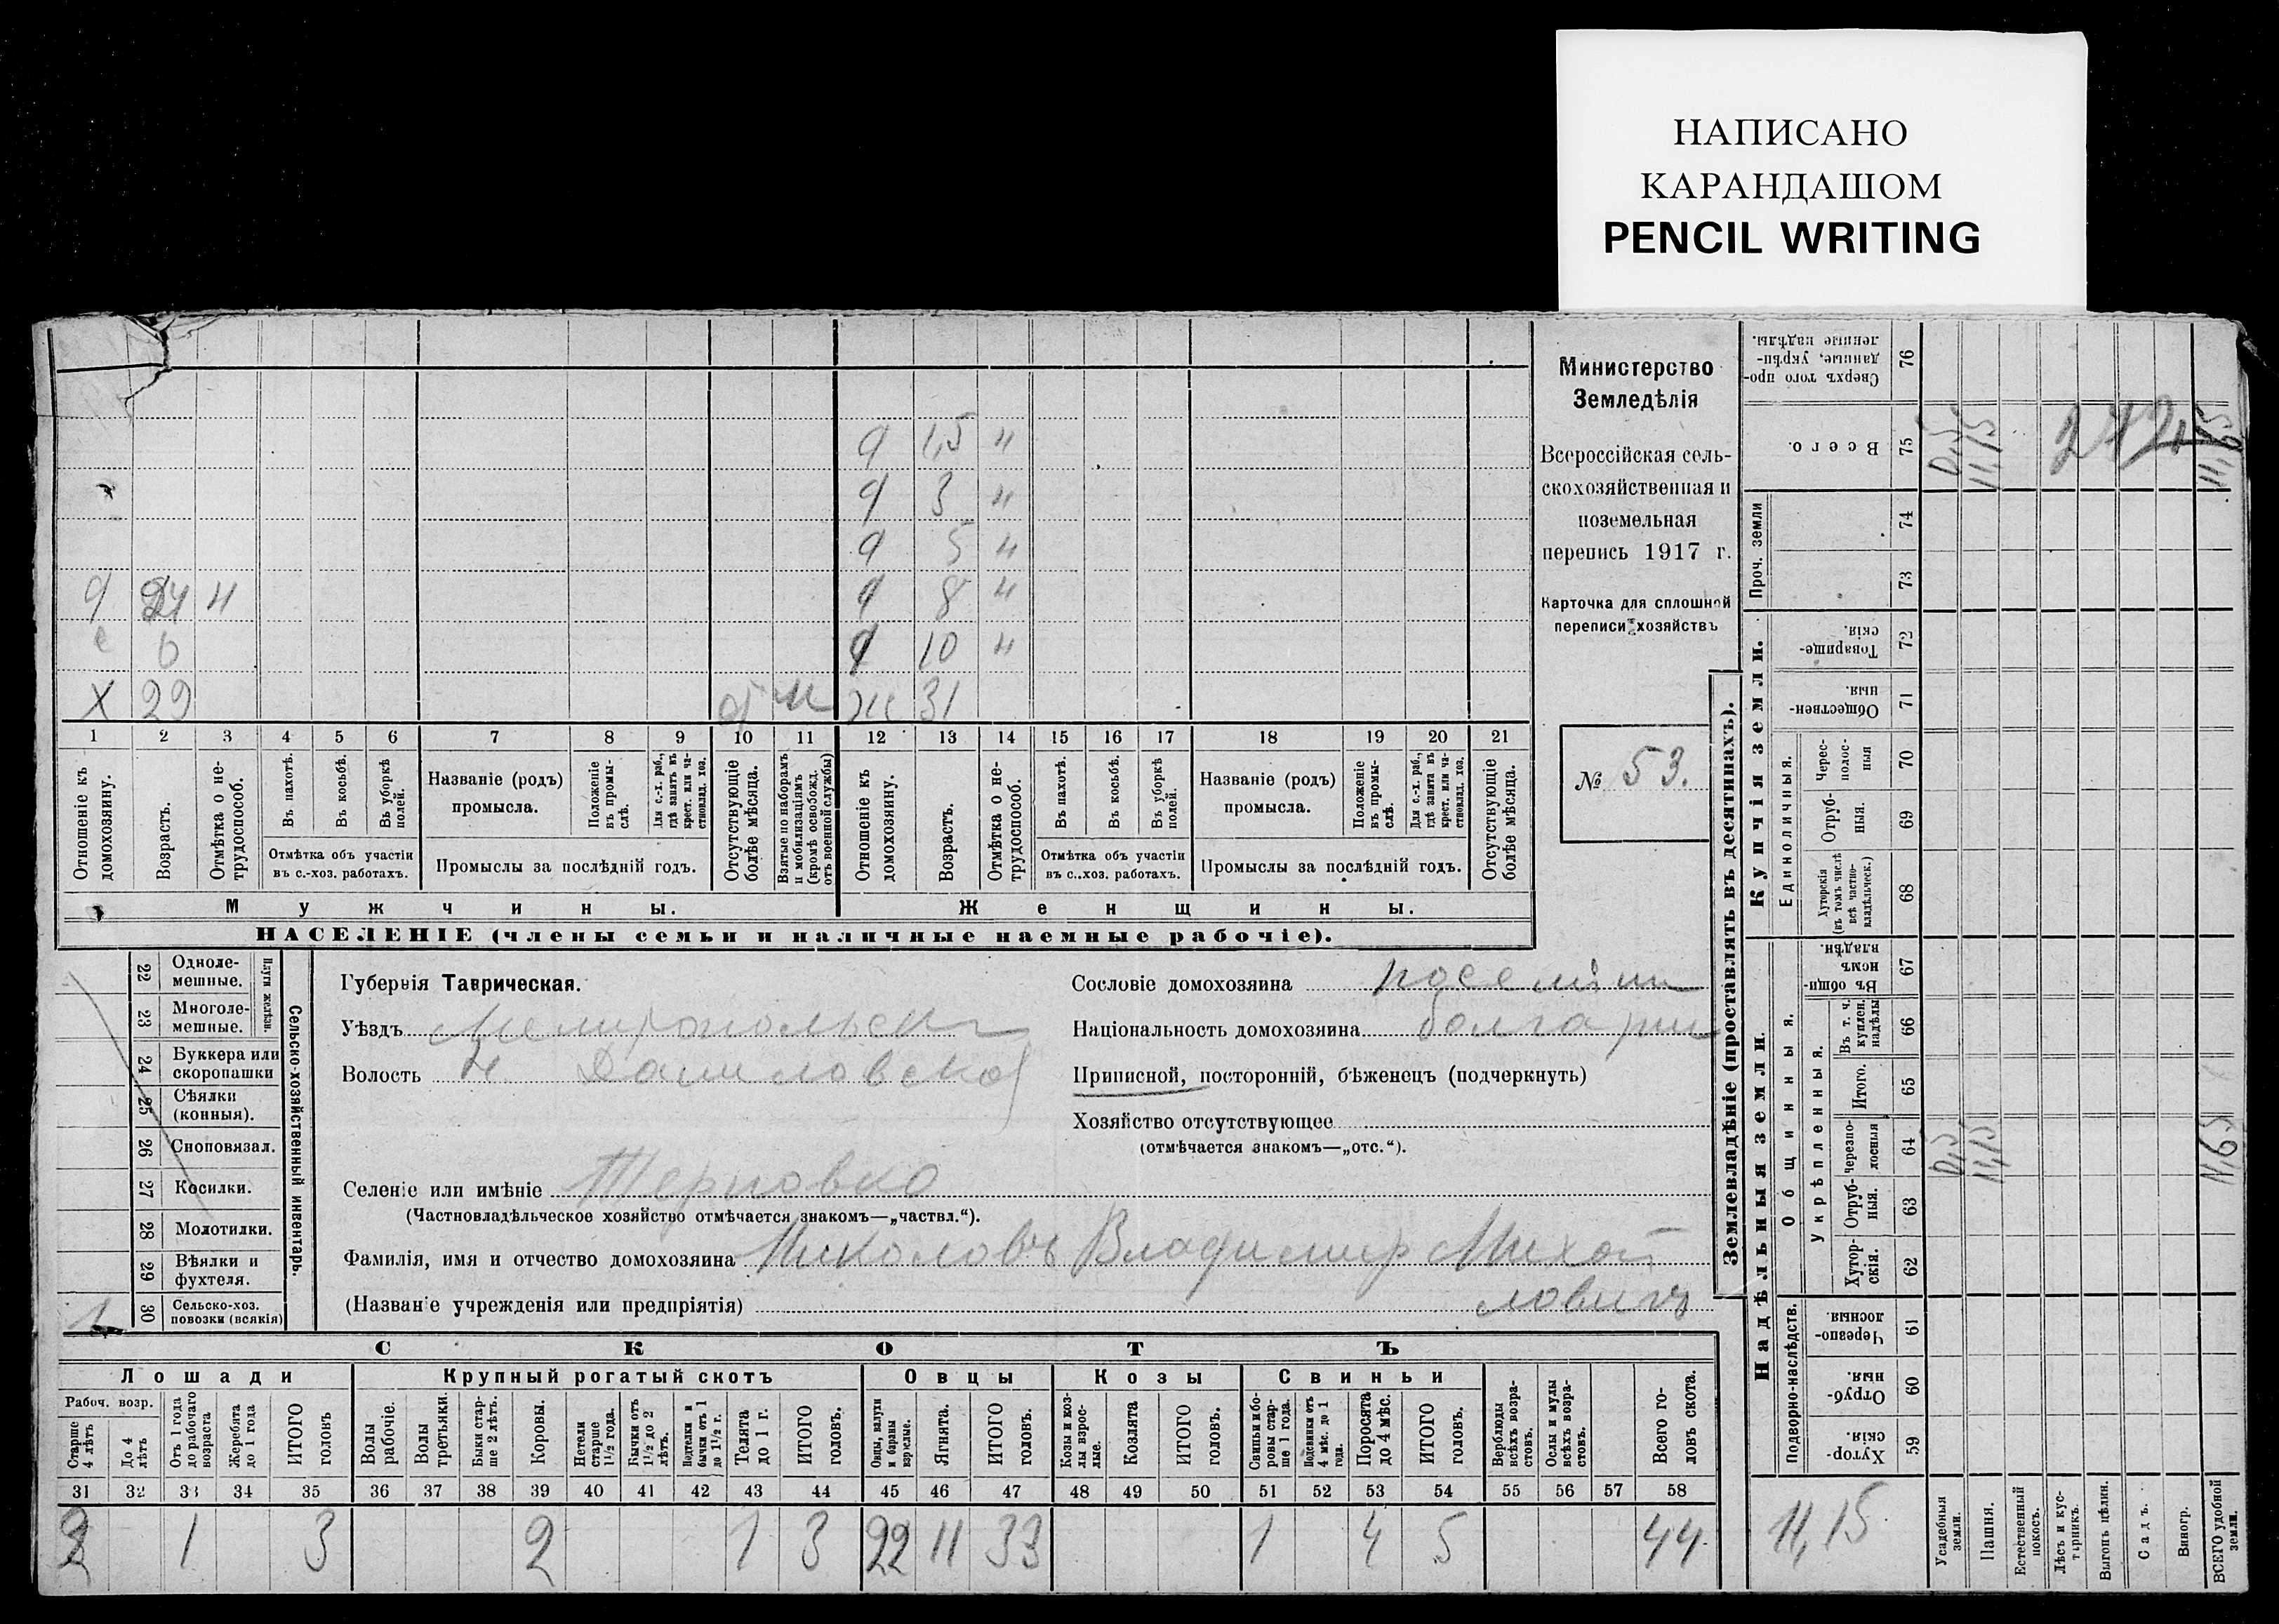 НАПИСАНО
КАРАНДАШОМ
PENCIL WRITING
Министерство
Земледѣлія
Всероссійская сель-
скохозяйственная и
поземельная
перепись 1917 г.
Карточка для сплошной
переписи хозяйствъ
№ 53.
Ч 1,5 "
Ч 3 "
Ч 5 "
Ч 24 н Ч 8 "
с 6 Ч 10 "
Х 29 Ж 31
1 2 3 4 5 6 7 8 9 10 11 12 13 14 15 16 17 18 19 20 21
Отношеніе къ домохозяину.
Возрастъ.
Отмѣтка о не-трудоспособ.
Въ пахотѣ.
Въ косьбѣ.
Въ уборкѣ полей.
Отмѣтка объ участіи
въ с.-хоз. работахъ.
Названіе (родъ)
промысла.
Положеніе въ промы-слѣ.
Для с.-х. раб., гдѣ занятъ въ крест. или ча-стновлад. хоз.
Промыслы за послѣдній годъ.
Отсутствующіе болѣе мѣсяца.
Взятые по наборамъ и мобилизаціямъ (кромѣ освобожд. отъ военной службы)
Отношеніе къ домохозяину.
Возрастъ.
Отмѣтка о не-трудоспособ.
Въ пахотѣ.
Въ косьбѣ.
Въ уборкѣ полей.
Отмѣтка объ участіи
въ с.-хоз. работахъ.
Названіе (родъ)
промысла.
Положеніе въ промы-слѣ.
Для с.-х. раб., гдѣ занята въ крест. или ча-стновлад. хоз.
Промыслы за послѣдній годъ.
Отсутствующіе болѣе мѣсяца.
Мужчины. Женщины.
НАСЕЛЕНІЕ (члены семьи и наличные наемные рабочіе).
Сельско-хозяйственный инвентарь.
Плуги желѣзн.
22 Одноле-мешные.
23 Многоле-мешные.
24 Буккера или скоропашки
25 Сѣялки (конныя).
26 Сноповязал.
27 Косилки.
28 Молотилки.
29 Вѣялки и фухтеля.
30 Сельско-хоз. повозки (всякія)
1
Губернія Таврическая.
Уѣздъ Мелитопольск
Волость Н Даниловской
Селеніе или имѣніе Терновка
(Частновладѣльческое хозяйство отмѣчается знакомъ—„частвл.“).
Фамилія, имя и отчество домохозяина Николовъ Владимир Михай
(Названіе учрежденія или предпріятія) лович
Сословіе домохозяина поселян
Національность домохозяина болгарин
Приписной, посторонній, бѣженецъ (подчеркнуть)
Хозяйство отсутствующее
(отмѣчается знакомъ—„отс.“).
СКОТЪ
Лошади Крупный рогатый скотъ Овцы Козы Свиньи
Рабоч. возр.
Старше 4 лѣтъ
До 4 лѣтъ
Отъ 1 года до рабочаго возраста
Жеребята до 1 года
ИТОГО головъ
Волы рабочіе.
Волы третьяки.
Быки стар-ше 2 лѣтъ.
Коровы.
Нетели старше 1½ года.
Бычки отъ 1½ до 2 лѣтъ.
Подтелки и бычки отъ 1 до 1½ г.
Телята до 1 г.
ИТОГО головъ.
Овцы, валухи и бараны взрослые.
Ягнята.
ИТОГО головъ.
Козы и коз-лы взрос-лые.
Козлята
ИТОГО головъ.
Свиньи и бо-ровы стар-ше 1 года.
Подсвинки отъ 4 мѣс. до 1 года.
Поросята до 4 мѣс.
ИТОГО головъ.
Верблюды всѣхъ возра-стовъ.
Ослы и мулы всѣхъ возра-стовъ.
Всего го-ловъ скота.
31 32 33 34 35 36 37 38 39 40 41 42 43 44 45 46 47 48 49 50 51 52 53 54 55 56 57 58
2 1 3 2 1 3 22 11 33 1 4 5 44
Землевладѣніе (проставлять въ десятинахъ).
Надѣльныя земли.
Купчія земли.
Подворно-наслѣдств.
Общинныя.
Укрѣпленныя.
Единоличныя.
Проч. земли
Хутор-скія. 59
Отруб-ныя. 60
Черезпо-лосныя. 61
Хутор-скія. 62
Отруб-ныя. 63
Черезпо-лосныя 64
Итого. 65
Въ т. ч. куплен. надѣлы 66
Въ общин-номъ владѣн. 67
Хуторскія (въ томъ числѣ всѣ частно-владѣльческ.) 68
Отруб-ныя. 69
Черес-полос-ныя 70
Обществен-ныя. 71
Товарище-скія. 72
73
74
Всего. 75
Сверхъ того про-данные, укрѣп-ленные надѣлы. 76
11,15
Усадебныя земли.
Пашня.
Естественный покосъ.
Лѣсъ и кус-тарникъ.
Выгонъ цѣлин.
Садъ.
Виногр.
ВСЕГО удобной земли.
11,15
11,65
11,15